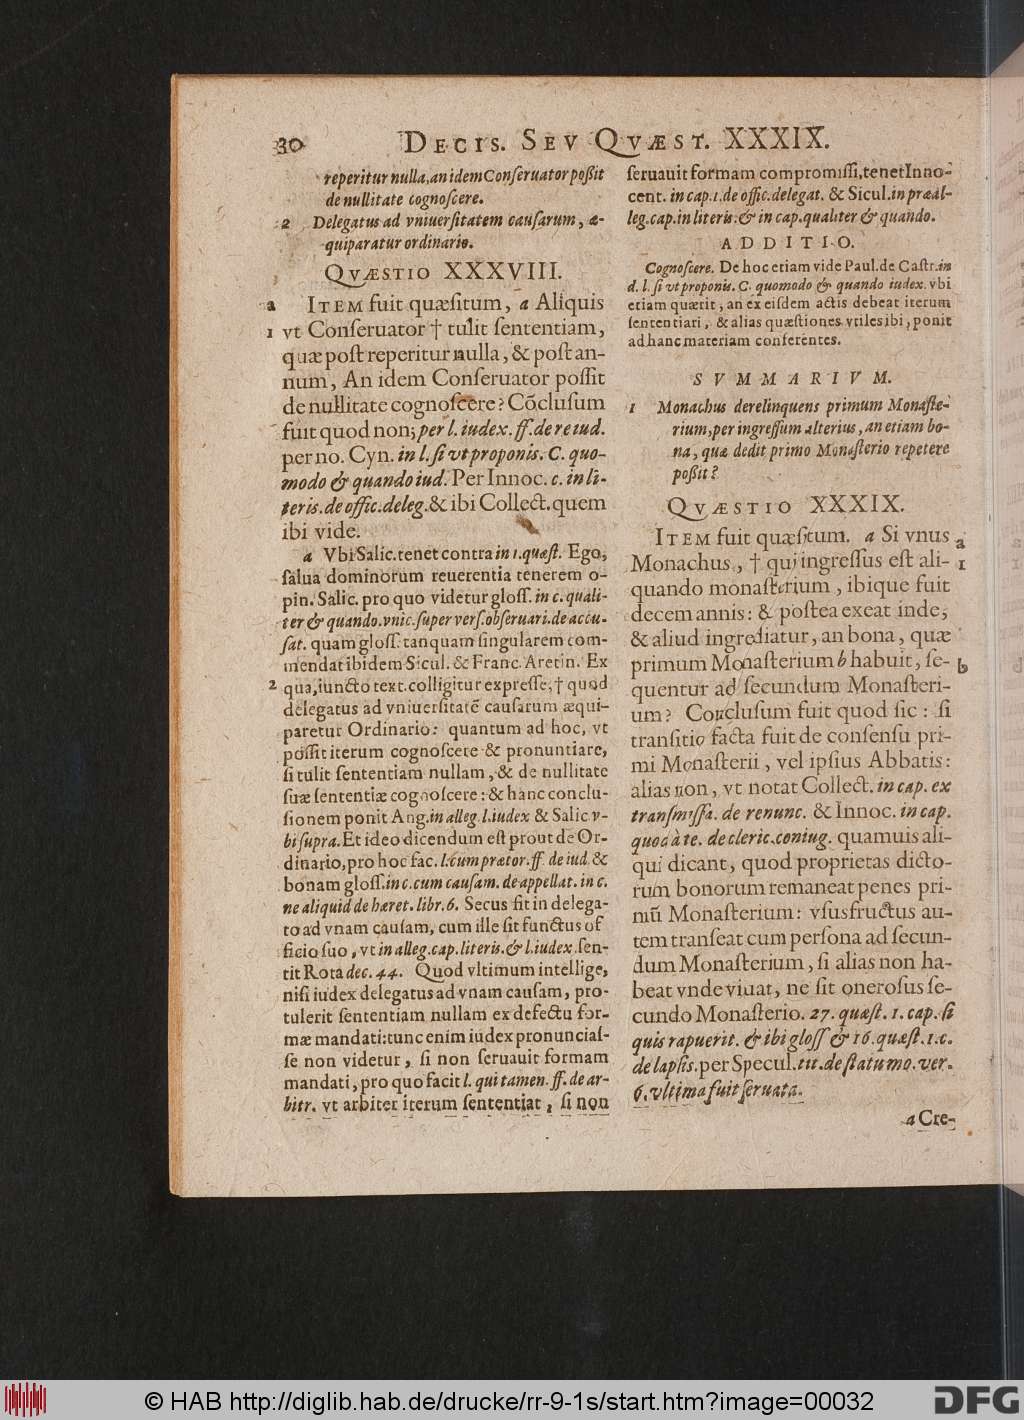 30 DECIS. SEV QVÆST. XXXIX.
reperitur nulla, an idem Conſeruator poßit
de nullitate cognoſcere.
2 Delegatus ad vniuerſitatem cauſarum, æ-
quiparatur ordinario.
QVÆSTIO XXXVIII.
a ITEM fuit quæſitum, a Aliquis
1 vt Conſeruator † tulit ſententiam,
quæ poſt reperitur nulla, & poſt an-
num, An idem Conſeruator poſſit
de nullitate cognoſcere? Cõcluſum
fuit quod non; per l. iudex. ff. de re iud.
per no. Cyn. in l. ſi vt proponis. C. quo-
modo & quando iud. Per Innoc. c. in li-
teris. de offic. deleg. & ibi Collect. quem
ibi vide.
a Vbi Salic. tenet contra in 1. quæſt. Ego,
ſalua dominorum reuerentia tenerem o-
pin. Salic. pro quo videtur gloſſ. in c. quali-
ter & quando. vnic. ſuper verſ. obſeruari. de accu-
ſat. quam gloſſ. tanquam ſingularem com-
mendat ibidem Sicul. & Franc. Aretin. Ex
2 qua, iuncto text. colligitur expreſſe, † quod
delegatus ad vniuerſitatẽ cauſarum æqui-
paretur Ordinario: quantum ad hoc, vt
poſſit iterum cognoſcere & pronuntiare,
ſi tulit ſententiam nullam, & de nullitate
ſuæ ſententiæ cognoſcere: & hanc conclu-
ſionem ponit Ang. in alleg. l. iudex & Salic v-
bi ſupra. Et ideo dicendum eſt prout de Or-
dinario, pro hoc fac. l. cum prætor. ff. de iud. &
bonam gloſſ. in c. cum cauſam. de appellat. in c.
ne aliquid de hæret. libr. 6. Secus ſit in delega-
to ad vnam cauſam, cum ille ſit functus of
ficio ſuo, vt in alleg. cap. literis. & l. iudex. ſen-
tit Rota dec. 44. Quod vltimum intellige,
niſi iudex delegatus ad vnam cauſam, pro-
tulerit ſententiam nullam ex defectu for-
mæ mandati: tunc enim iudex pronunciaſ-
ſe non videtur, ſi non ſeruauit formam
mandati, pro quo facit l. qui tamen. ff. de ar-
bitr. vt arbiter iterum ſententiat, ſi non
ſeruauit formam compromiſſi, tenet Inno-
cent. in cap. 1. de offic. delegat. & Sicul. in præal-
leg. cap. in literis: & in cap. qualiter & quando.
ADDITIO.
Cognoſcere. De hoc etiam vide Paul. de Caſtr. in
d. l. ſi vt proponis. C. quomodo & quando iudex. vbi
etiam quærit, an ex eiſdem actis debeat iterum
ſententiari, & alias quæſtiones vtiles ibi, ponit
ad hanc materiam conferentes.
SVMMARIVM.
1 Monachus derelinquens primum Monaſte-
rium, per ingreſſum alterius, an etiam bo-
na, quæ dedit primo Monaſterio repetere
poßit?
QVÆSTIO XXXIX.
ITEM fuit quæſitum. a Si vnus a
Monachus, † qui ingreſſus eſt ali- 1
quando monaſterium, ibique fuit
decem annis: & poſtea exeat inde,
& aliud ingrediatur, an bona, quæ
primum Monaſterium b habuit, ſe- b
quentur ad ſecundum Monaſteri-
um? Concluſum fuit quod ſic: ſi
tranſitio facta fuit de conſenſu pri-
mi Monaſterii, vel ipſius Abbatis:
alias non, vt notat Collect. in cap. ex
tranſmiſſa. de renunc. & Innoc. in cap.
quod à te. de cleric. coniug. quamuis ali-
qui dicant, quod proprietas dicto-
rum bonorum remaneat penes pri-
mũ Monaſterium: vſusfructus au-
tem tranſeat cum perſona ad ſecun-
dum Monaſterium, ſi alias non ha-
beat vnde viuat, ne ſit oneroſus ſe-
cundo Monaſterio. 27. quæſt. 1. cap. ſi
quis rapuerit. & ibi gloſſ & 16. quæſt. 1. c.
de lapſis. per Specul. tit. de ſtatu mo. ver.
6. vltima fuit ſeruata.
a Cre-
© HAB http://diglib.hab.de/drucke/rr-9-1s/start.htm?image=00032
DFG